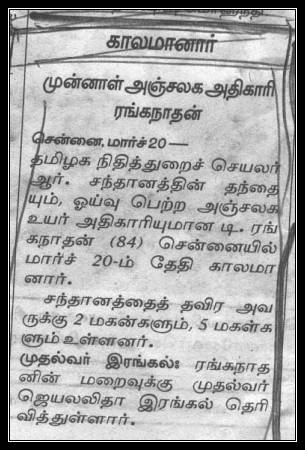 காலமானார்
முன்னாள் அஞ்சலக அதிகாரி
ரங்கநாதன்
சென்னை, மார்ச் 20 —
தமிழக நிதித்துறைச் செயலர்
ஆர். சந்தானத்தின் தந்தை
யும், ஓய்வு பெற்ற அஞ்சலக
உயர் அதிகாரியுமான டி. ரங்
கநாதன் (84) சென்னையில்
மார்ச் 20-ம் தேதி காலமா
னார்.
சந்தானத்தைத் தவிர அவ
ருக்கு 2 மகன்களும், 5 மகள்க
ளும் உள்ளனர்.
முதல்வர் இரங்கல்: ரங்கநாத
னின் மறைவுக்கு முதல்வர்
ஜெயலலிதா இரங்கல் தெரி
வித்துள்ளார்.